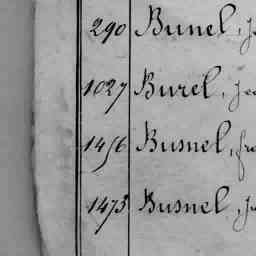 290 Bunel, J
1027 Burel, Jea
1456 Busnel, fra
1473 Busnel, Ju